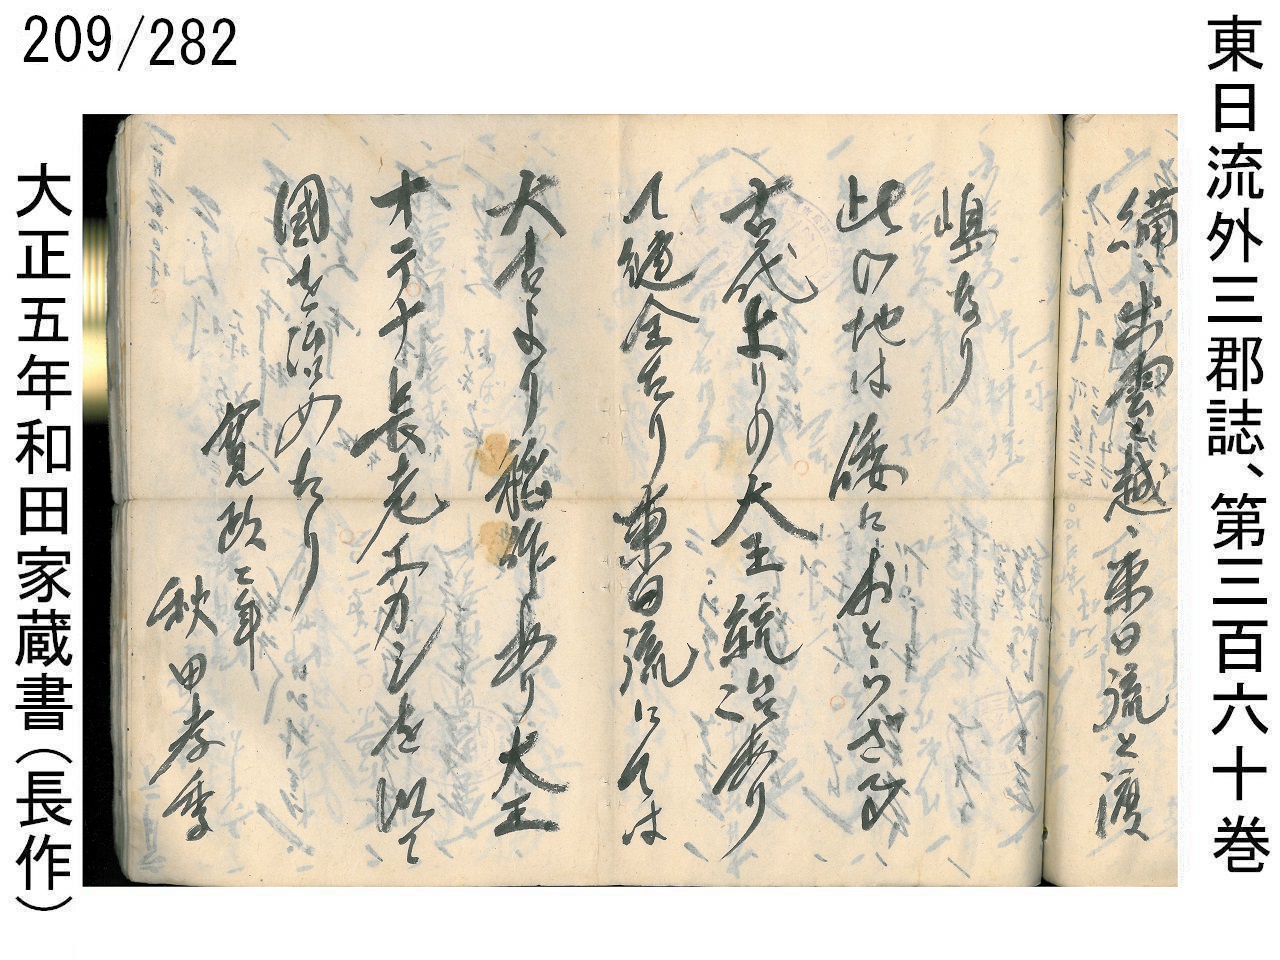 209/282
東日流外三郡誌、第三百六十巻
備、出雲と越、東日流と渡
嶋なり
此の地は倭におとらざる
古代よりの大王統治あり
て遺全たり東日流にては
大古より稲作あり大王
オテナ長老エカシを以て
國を治めたり
寛政二年
秋田孝季
大正五年和田家蔵書(長作)